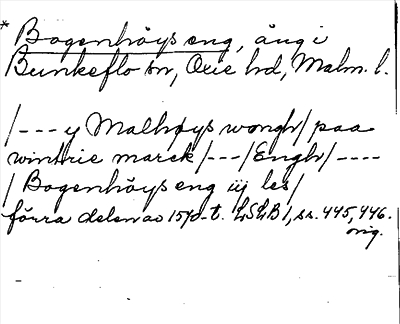 * Bogenhöys eng, äng i
Bunkeflo sn, Oxie hd, Malm. l.
/--- y Malhøys wongh/ paa
wintrie marck/---/Engh/----
/ Bogenhöys eng iij les/
förra delen av 1570-t. LSLB 1, ss. 445, 446.
orig.